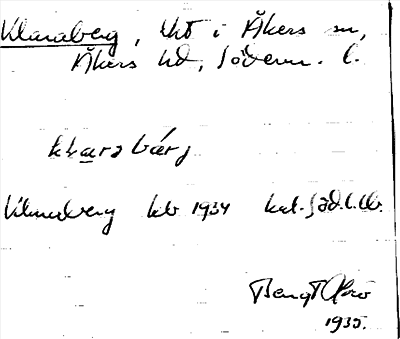 Klaraberg, lht i Åkers sn,
Åkers hd, Söderm. l.
klarabärj
Klaraberg kb 1934 kal. Söd. l. lb.
Bengt
1935.